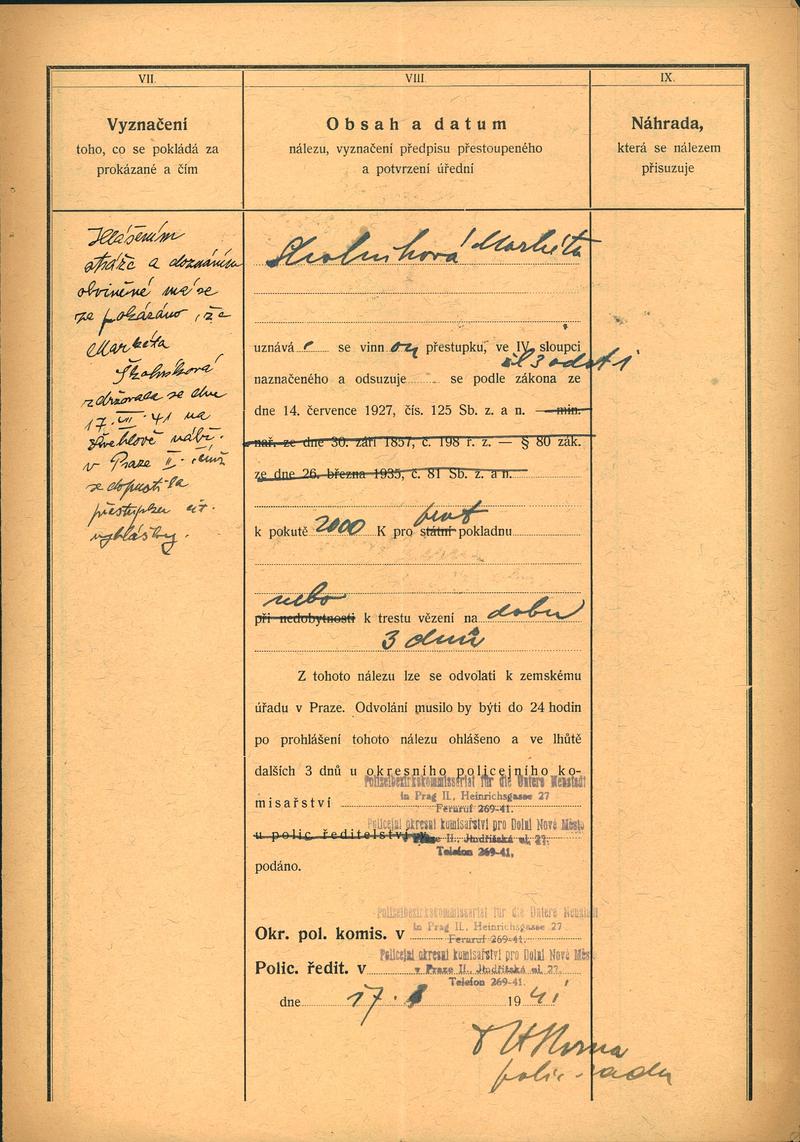 VII.
Vyznačení
toho, co se pokládá za
prokázané a čím
Hlášením
stráže a doznáním
obviněné má se
za pokázáno, že
Markéta
Školníková
zdržovala se dne
17. VII. 41 na
nábř.
v Praze II. čímž
se dopustila
přestupku cit.
vyhlášky.
VIII.
Obsah a datum
nálezu, vyznačení předpisu přestoupeného
a potvrzení úřední
Školníková Markéta
uznává se vinn ou přestupku, ve IV. sloupci
čl 3 odst 1
naznačeného a odsuzuje se podle zákona ze
dne 14. července 1927, čís. 125 Sb. z. a n. — min.
nař. ze dne 30. září 1857, č. 198 ř. z. — § 80 zák.
ze dne 26. března 1935, č. 81 Sb. z. a n.
k pokutě 2000 K pro státní pokladnu
nebo
při nedobytnosti k trestu vězení na dobu
3 dnů
Z tohoto nálezu lze se odvolati k zemskému
úřadu v Praze. Odvolání musilo by býti do 24 hodin
po prohlášení tohoto nálezu ohlášeno a ve lhůtě
dalších 3 dnů u okresního policejního ko-
Polizeibezirkskommissariat für die Untere Neustadt
in Prag II., Heinrichsgasse 27
misařství
Fernruf 269-41.
Policejní okresní komisařství pro Dolní Nové Město
u polic. ředitelství v
v Praze II., Jindřišská ul. 27.
Telefon 269-41.
podáno.
Polizeibezirkskommissariat für die Untere Neustadt
in Prag II., Heinrichsgasse 27
Okr. pol. komis. v
Fernruf 269-41.
Policejní okresní komisařství pro Dolní Nové Město
Polic. ředit. v
v Praze II., Jindřišská ul. 27.
Telefon 269-41.
dne 17. 8 1941
polic. rada
IX.
Náhrada,
která se nálezem
přisuzuje